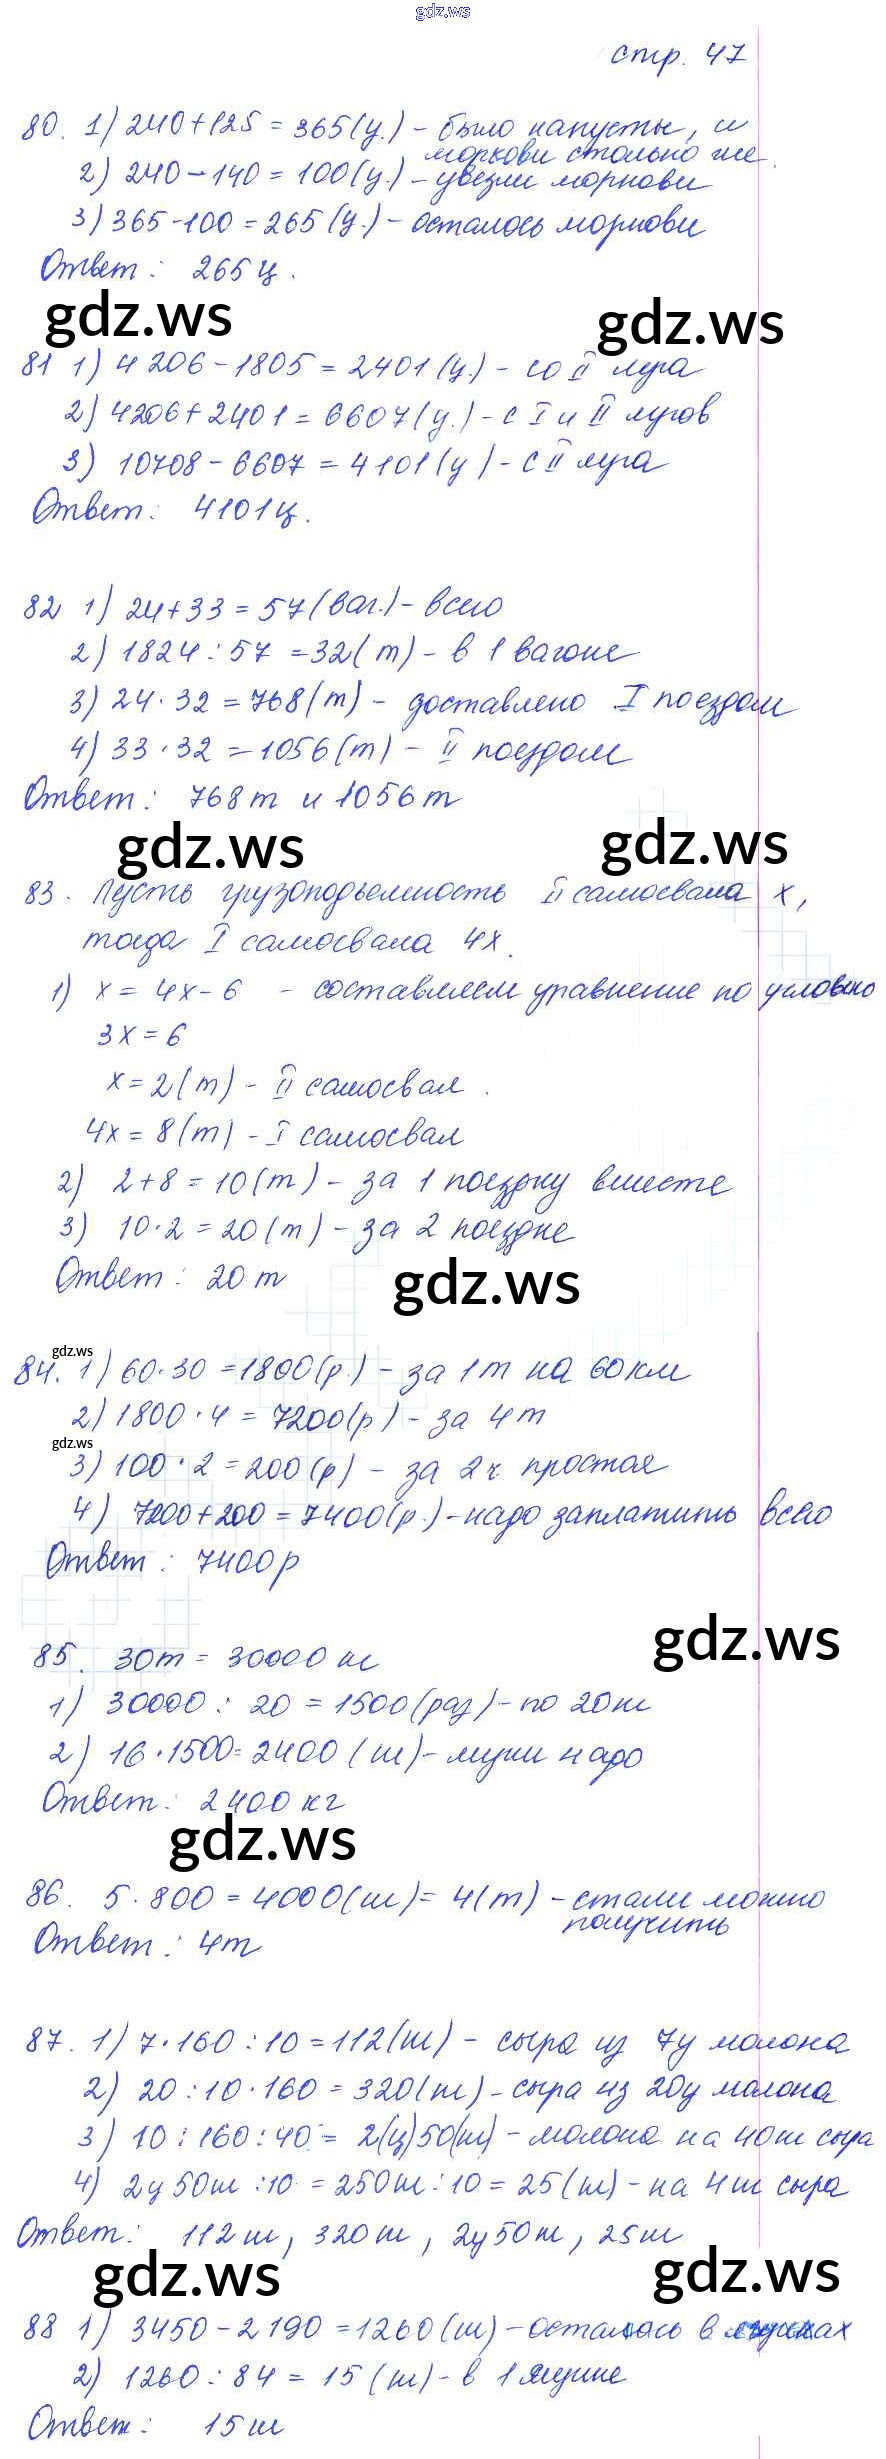 gdz.ws
стр. 47
80. 1) 240+125 = 365(ц.) - было капусты, и
моркови столько же.
2) 240-140 = 100(ц.) - увезли моркови
3) 365-100 = 265(ц.) - осталось моркови
Ответ: 265 ц.
gdz.ws gdz.ws
81 1) 4206-1805 = 2401(ц.) - со II луга
2) 4206+2401 = 6607(ц.) - с I и II лугов
3) 10708-6607 = 4101(ц) - с II луга
Ответ: 4101 ц.
82 1) 24+33 = 57(ваг.) - всего
2) 1824:57 = 32(т) - в 1 вагоне
3) 24·32 = 768(т) - доставлено I поездом
4) 33·32 = 1056(т) - II поездом
Ответ: 768 т и 1056 т
gdz.ws gdz.ws
83. Пусть грузоподъемность II самосвала x,
тогда I самосвала 4x.
1) x = 4x-6 - составляем уравнение по условию
3x = 6
x = 2(т) - II самосвал.
4x = 8(т) - I самосвал
2) 2+8 = 10(т) - за 1 поездку вместе
3) 10·2 = 20(т) - за 2 поездке
Ответ: 20 т
gdz.ws
gdz.ws
84. 1) 60·30 = 1800(р.) - за 1т на 60 км
2) 1800·4 = 7200(р) - за 4 т
gdz.ws
3) 100·2 = 200(р) - за 2 ч. простоя
4) 7200+200 = 7400(р.) - надо заплатить всего
Ответ: 7400 р
gdz.ws
85. 30т = 30000 кг
1) 30000 : 20 = 1500(раз) - по 20 кг
2) 16·1500 = 2400(кг) - муки надо
Ответ: 2400 кг
gdz.ws
86. 5·800 = 4000(кг) = 4(т) - стали можно
получить
Ответ: 4т
87. 1) 7·160:10 = 112(кг) - сыра из 7ц молока
2) 20:10·160 = 320(кг) - сыра из 20ц молока
3) 10:160:40 = 2(ц)50(кг) - молока на 40 кг сыра
4) 2ц 50кг :10 = 250кг:10 = 25(кг) - на 4 кг сыра
Ответ: 112 кг, 320 кг, 2ц 50 кг, 25 кг
gdz.ws gdz.ws
88 1) 3450-2190 = 1260(кг) - осталось в ящиках
2) 1260:84 = 15(кг) - в 1 ящике
Ответ: 15 кг